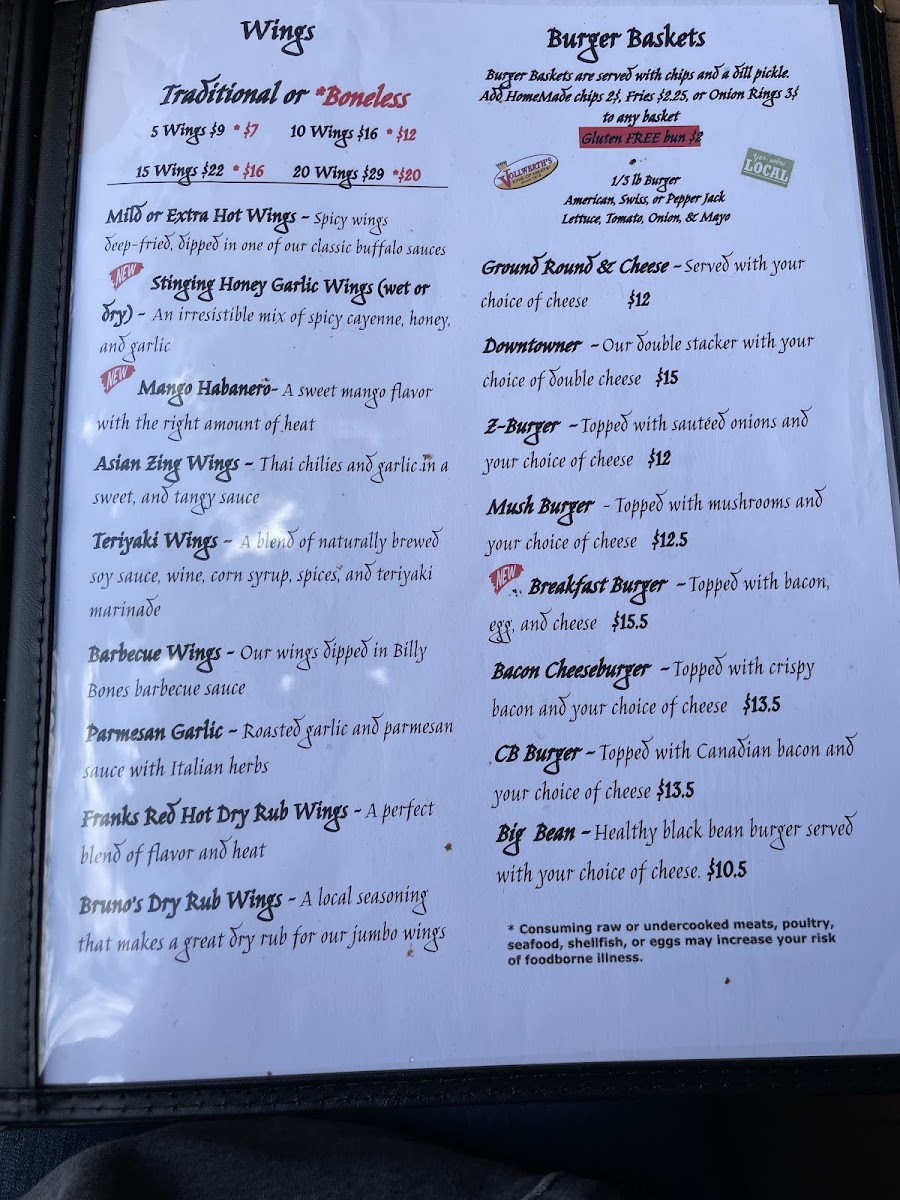 Wings
Traditional or *Boneless
5 Wings $9 *$7 10 Wings $16 *$12
15 Wings $22 *$16 20 Wings $29 *$20
Mild or Extra Hot Wings - Spicy wings
deep-fried, dipped in one of our classic buffalo sauces
NEW Stinging Honey Garlic Wings (wet or
dry) - An irresistible mix of spicy cayenne, honey,
and garlic
NEW Mango Habanero- A sweet mango flavor
with the right amount of heat
Asian Zing Wings - Thai chilies and garlic in a
sweet, and tangy sauce
Teriyaki Wings - A blend of naturally brewed
soy sauce, wine, corn syrup, spices, and teriyaki
marinade
Barbecue Wings - Our wings dipped in Billy
Bones barbecue sauce
Parmesan Garlic - Roasted garlic and parmesan
sauce with Italian herbs
Franks Red Hot Dry Rub Wings - A perfect
blend of flavor and heat
Bruno's Dry Rub Wings - A local seasoning
that makes a great dry rub for our jumbo wings
Burger Baskets
Burger Baskets are served with chips and a dill pickle.
Add HomeMade chips 2$, Fries $2.25, or Onion Rings 3$
to any basket
Gluten FREE bun $2
VOLLWERTH'S
LOCAL
1/3 lb Burger
American, Swiss, or Pepper Jack
Lettuce, Tomato, Onion, & Mayo
Ground Round & Cheese - Served with your
choice of cheese $12
Downtowner - Our double stacker with your
choice of double cheese $15
Z-Burger - Topped with sautéed onions and
your choice of cheese $12
Mush Burger - Topped with mushrooms and
your choice of cheese $12.5
NEW Breakfast Burger - Topped with bacon,
egg, and cheese $15.5
Bacon Cheeseburger - Topped with crispy
bacon and your choice of cheese $13.5
CB Burger - Topped with Canadian bacon and
your choice of cheese $13.5
Big Bean - Healthy black bean burger served
with your choice of cheese. $10.5
* Consuming raw or undercooked meats, poultry,
seafood, shellfish, or eggs may increase your risk
of foodborne illness.